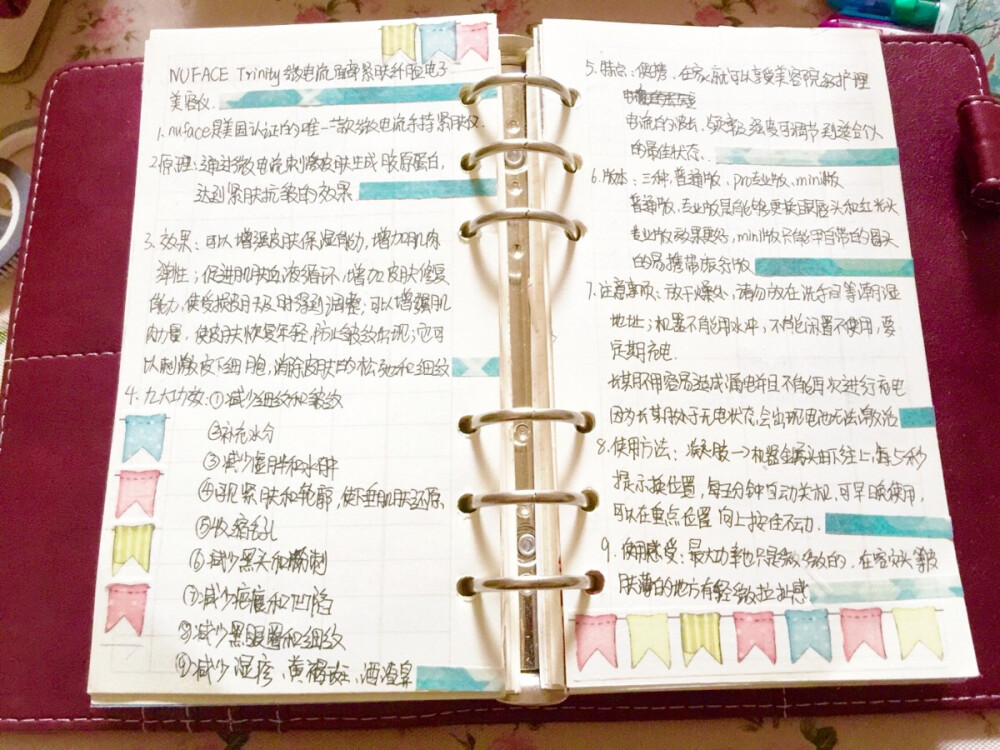 NUFACE Trinity微电流面部紧肤纤脸电子
美容仪.
1. nuface是美国认证的唯一一款微电流手持紧肤仪.
2.原理:通过微电流刺激皮肤生成胶原蛋白,
达到紧肤抗皱的效果
3. 效果:可以增强皮肤保湿能力,增加肌肤
弹性;促进肌肤血液循环,增加皮肤修复
能力,使受损肌肤及时得到调整,可以增强肌
肉力量,使皮肤恢复年轻,防止皱纹出现;它可
以刺激皮下细胞,消除皮肤的松弛和细纹
4. 九大功效:①减少细纹和皱纹
②补充水分
③减少虚胖和水肿
④紧肤和轮廓,使下垂肌肤还原
⑤收缩毛孔
⑥减少黑头和粉刺
⑦减少疤痕和凹陷
⑧减少黑眼圈和细纹
⑨减少湿疹、黄褐斑、酒渣鼻
5. 特点:便携,在家就可以享受美容院级护理
电流的强度可调节到适合个人
的最佳状态.
6. 版本:三种,普通版、pro专业版、mini版
普通版,专业版是能够更换眼唇头和红光头
专业版效果更好,mini版只能用自带的圆头
的易携带旅行版
7. 注意事项:放干燥处,请勿放在洗手间等潮湿
地址;机器不能用水冲,不能闲置不使用,要
定期充电.
长期不用容易造成漏电并且不能再次进行充电
因为长期处于无电状态,会出现电池无法激活
8. 使用方法:凝胶→机器金属头由下往上每5秒
提示换位置,每五分钟自动关机,可早晚使用,
可以在重点位置向上按住不动.
9. 使用感受:最大功率也只是微微的,在客观头等皮
肤薄的地方有轻微拉扯感